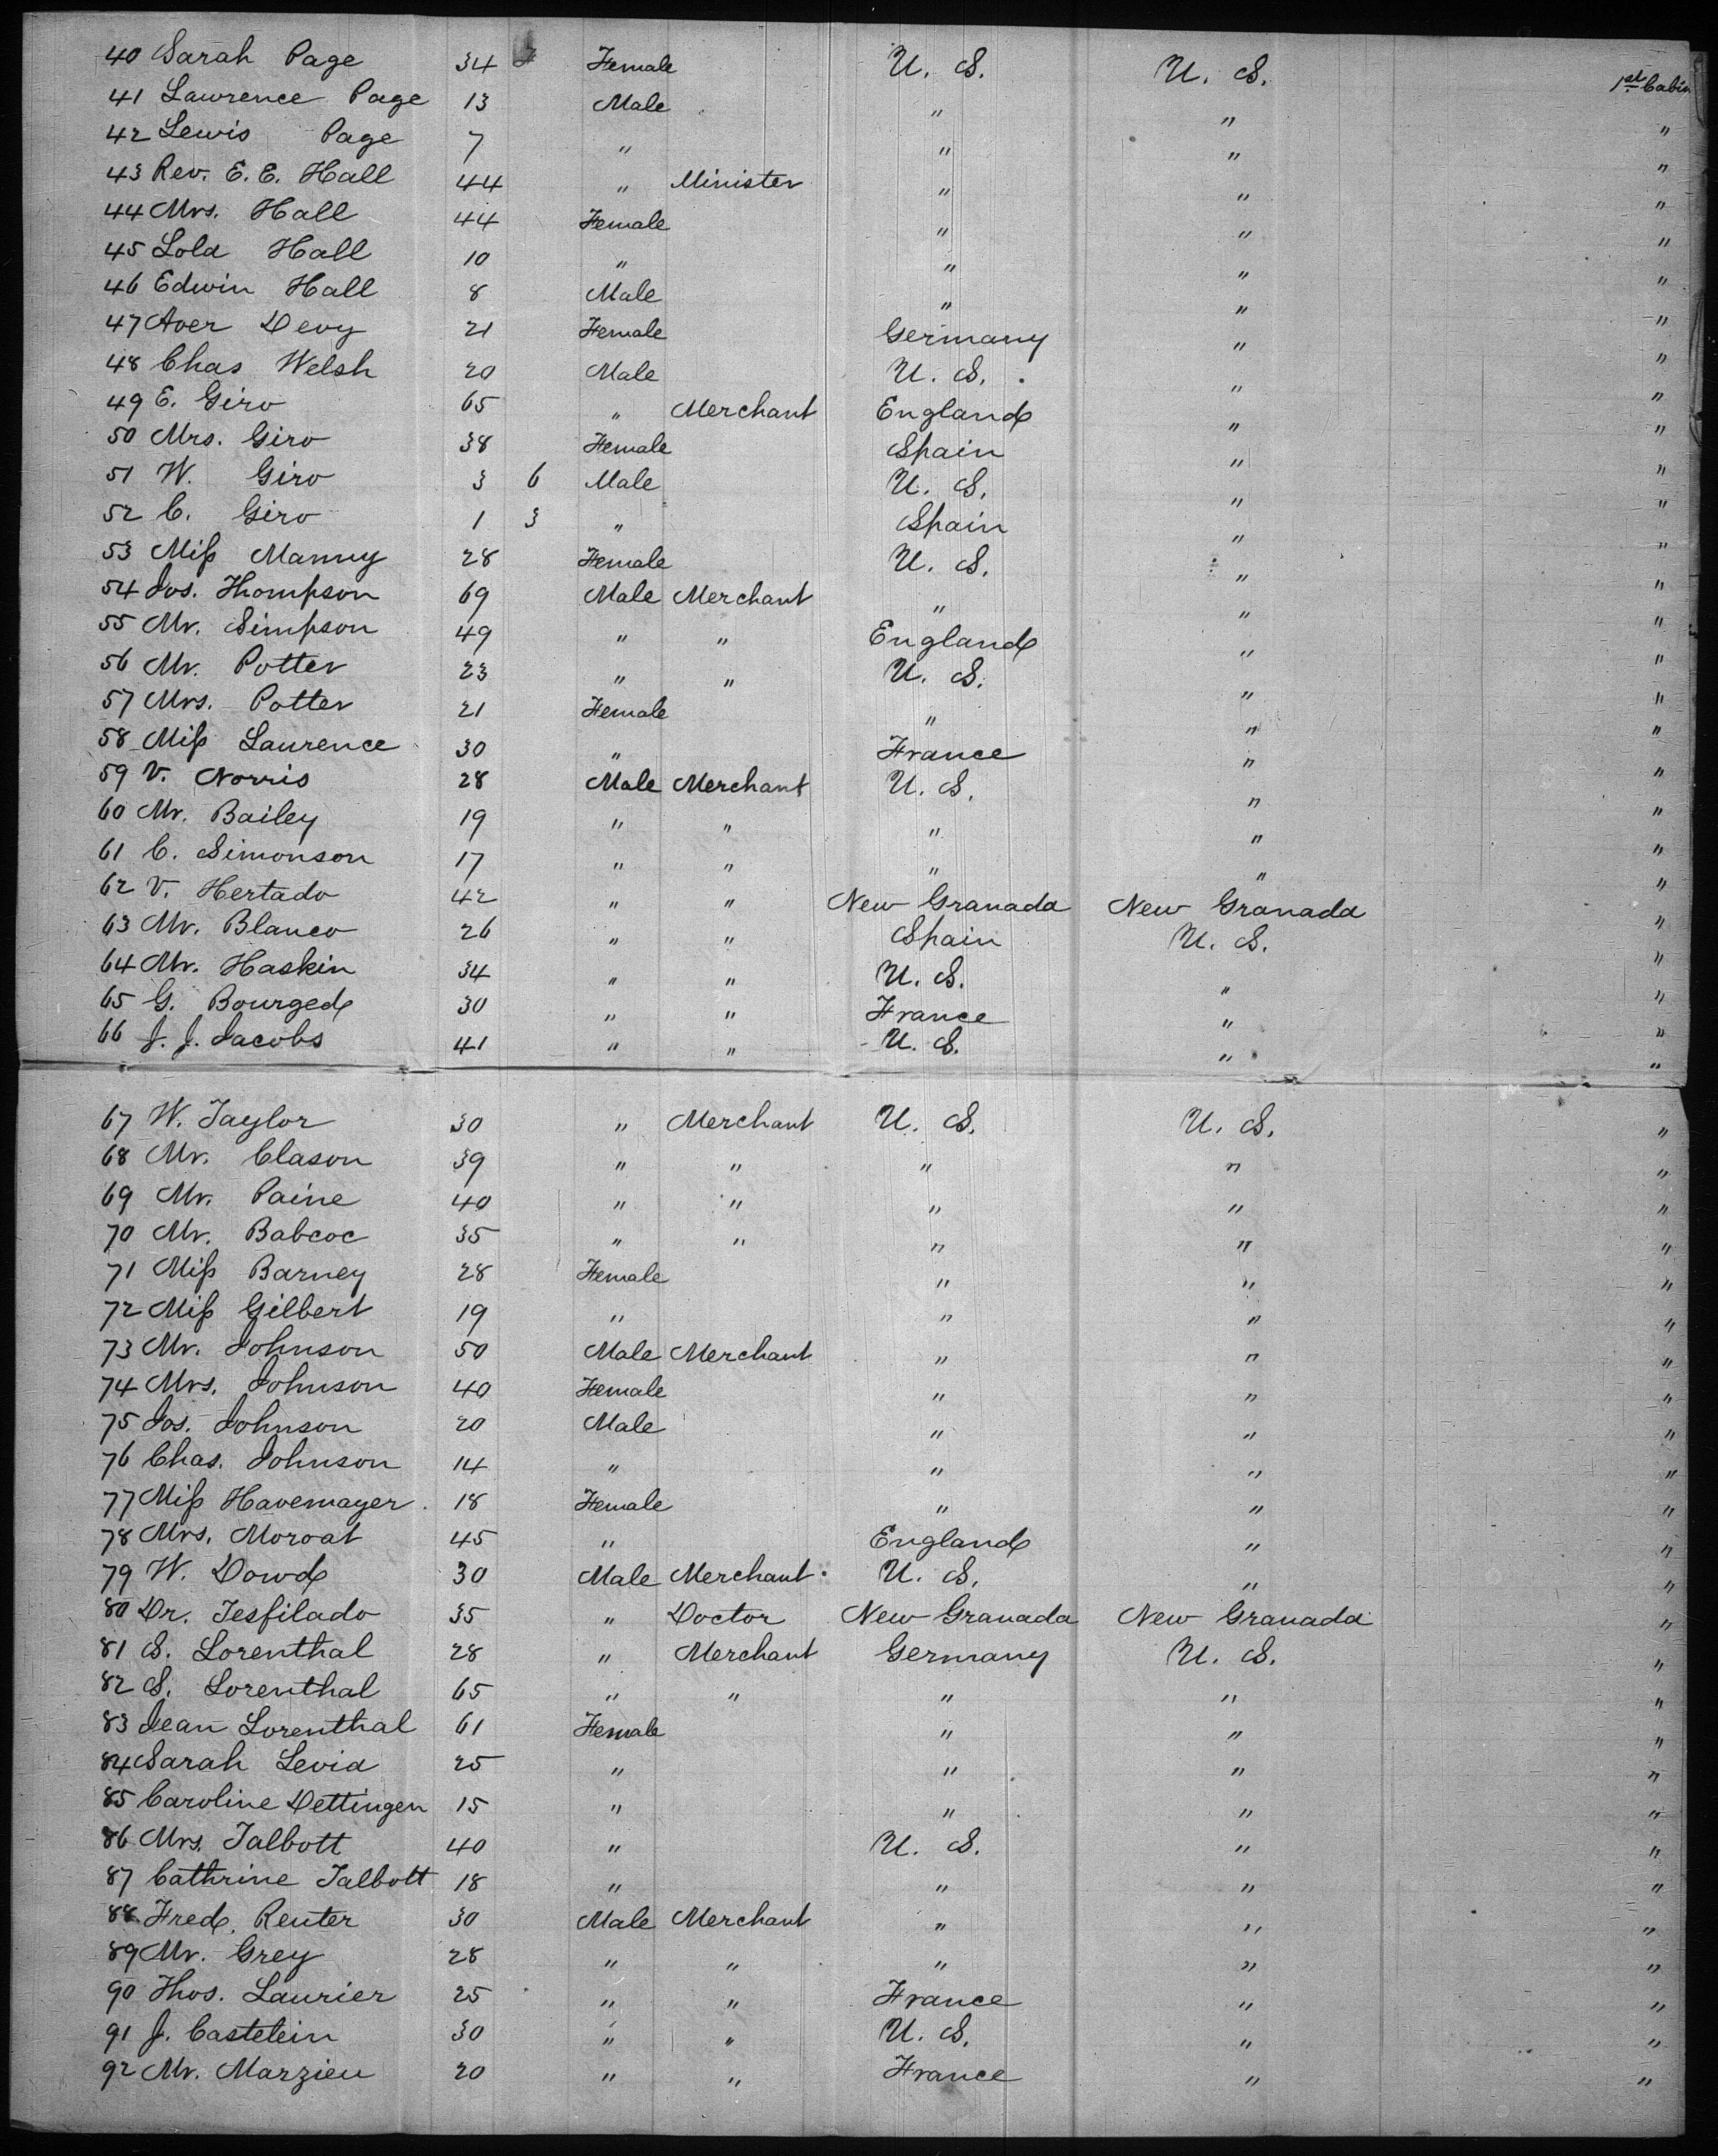 40 Sarah Page 34 Female U. S. U. S. 1st Cabin
41 Lawrence Page 13 Male " " "
42 Lewis Page 7 " " " "
43 Rev. E. E. Hall 44 " Minister " " "
44 Mrs. Hall 44 Female " " "
45 Lola Hall 10 " " " "
46 Edwin Hall 8 Male " " "
47 Aver Devy 21 Female Germany " "
48 Chas Welsh 20 Male U. S. " "
49 E. Giro 65 " Merchant England " "
50 Mrs. Giro 38 Female Spain " "
51 W. Giro 3 6 Male U. S. " "
52 C. Giro 1 3 " Spain " "
53 Miss Manny 28 Female U. S. " "
54 Jos. Thompson 69 Male Merchant " " "
55 Mr. Simpson 49 " " England " "
56 Mr. Potter 23 " " U. S. " "
57 Mrs. Potter 21 Female " " "
58 Miss Laurence 30 " France " "
59 V. Norris 28 Male Merchant U. S. " "
60 Mr. Bailey 19 " " " " "
61 C. Simonson 17 " " " " "
62 V. Hertado 42 " " New Granada New Granada "
63 Mr. Blanco 26 " " Spain U. S. "
64 Mr. Haskin 34 " " U. S. " "
65 G. Bourged 30 " " France " "
66 J. J. Jacobs 41 " " U. S. " "
67 W. Taylor 30 " Merchant U. S. U. S. "
68 Mr. Clason 39 " " " " "
69 Mr. Paine 40 " " " " "
70 Mr. Babcoc 35 " " " " "
71 Miss Barney 28 Female " " "
72 Miss Gilbert 19 " " " "
73 Mr. Johnson 50 Male Merchant " " "
74 Mrs. Johnson 40 Female " " "
75 Jos. Johnson 20 Male " " "
76 Chas. Johnson 14 " " " "
77 Miss Havemayer 18 Female " " "
78 Mrs. Moroat 45 " England " "
79 W. Dowd 30 Male Merchant U. S. " "
80 Dr. Tesfilado 35 " Doctor New Granada New Granada "
81 S. Lorenthal 28 " Merchant Germany U. S. "
82 S. Lorenthal 65 " " " " "
83 Jean Lorenthal 61 Female " " "
84 Sarah Levia 25 " " " "
85 Caroline Dettingen 15 " " " "
86 Mrs. Talbott 40 " U. S. " "
87 Cathrine Talbott 18 " " " "
88 Fred. Reuter 30 Male Merchant " " "
89 Mr. Grey 28 " " " " "
90 Thos. Laurier 25 " " France " "
91 J. Castelein 30 " " U. S. " "
92 Mr. Marzieu 20 " " France " "